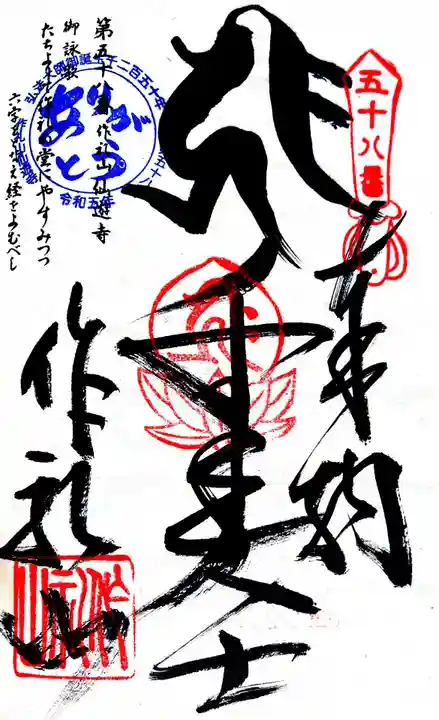 五十八番
奉納
千手大士
作礼山
第五十八番 作礼山 仙遊寺
御詠歌
たちよりて作礼の堂にやすみつつ
六字をとなえ経をよむべし
ありがとう
令和五年